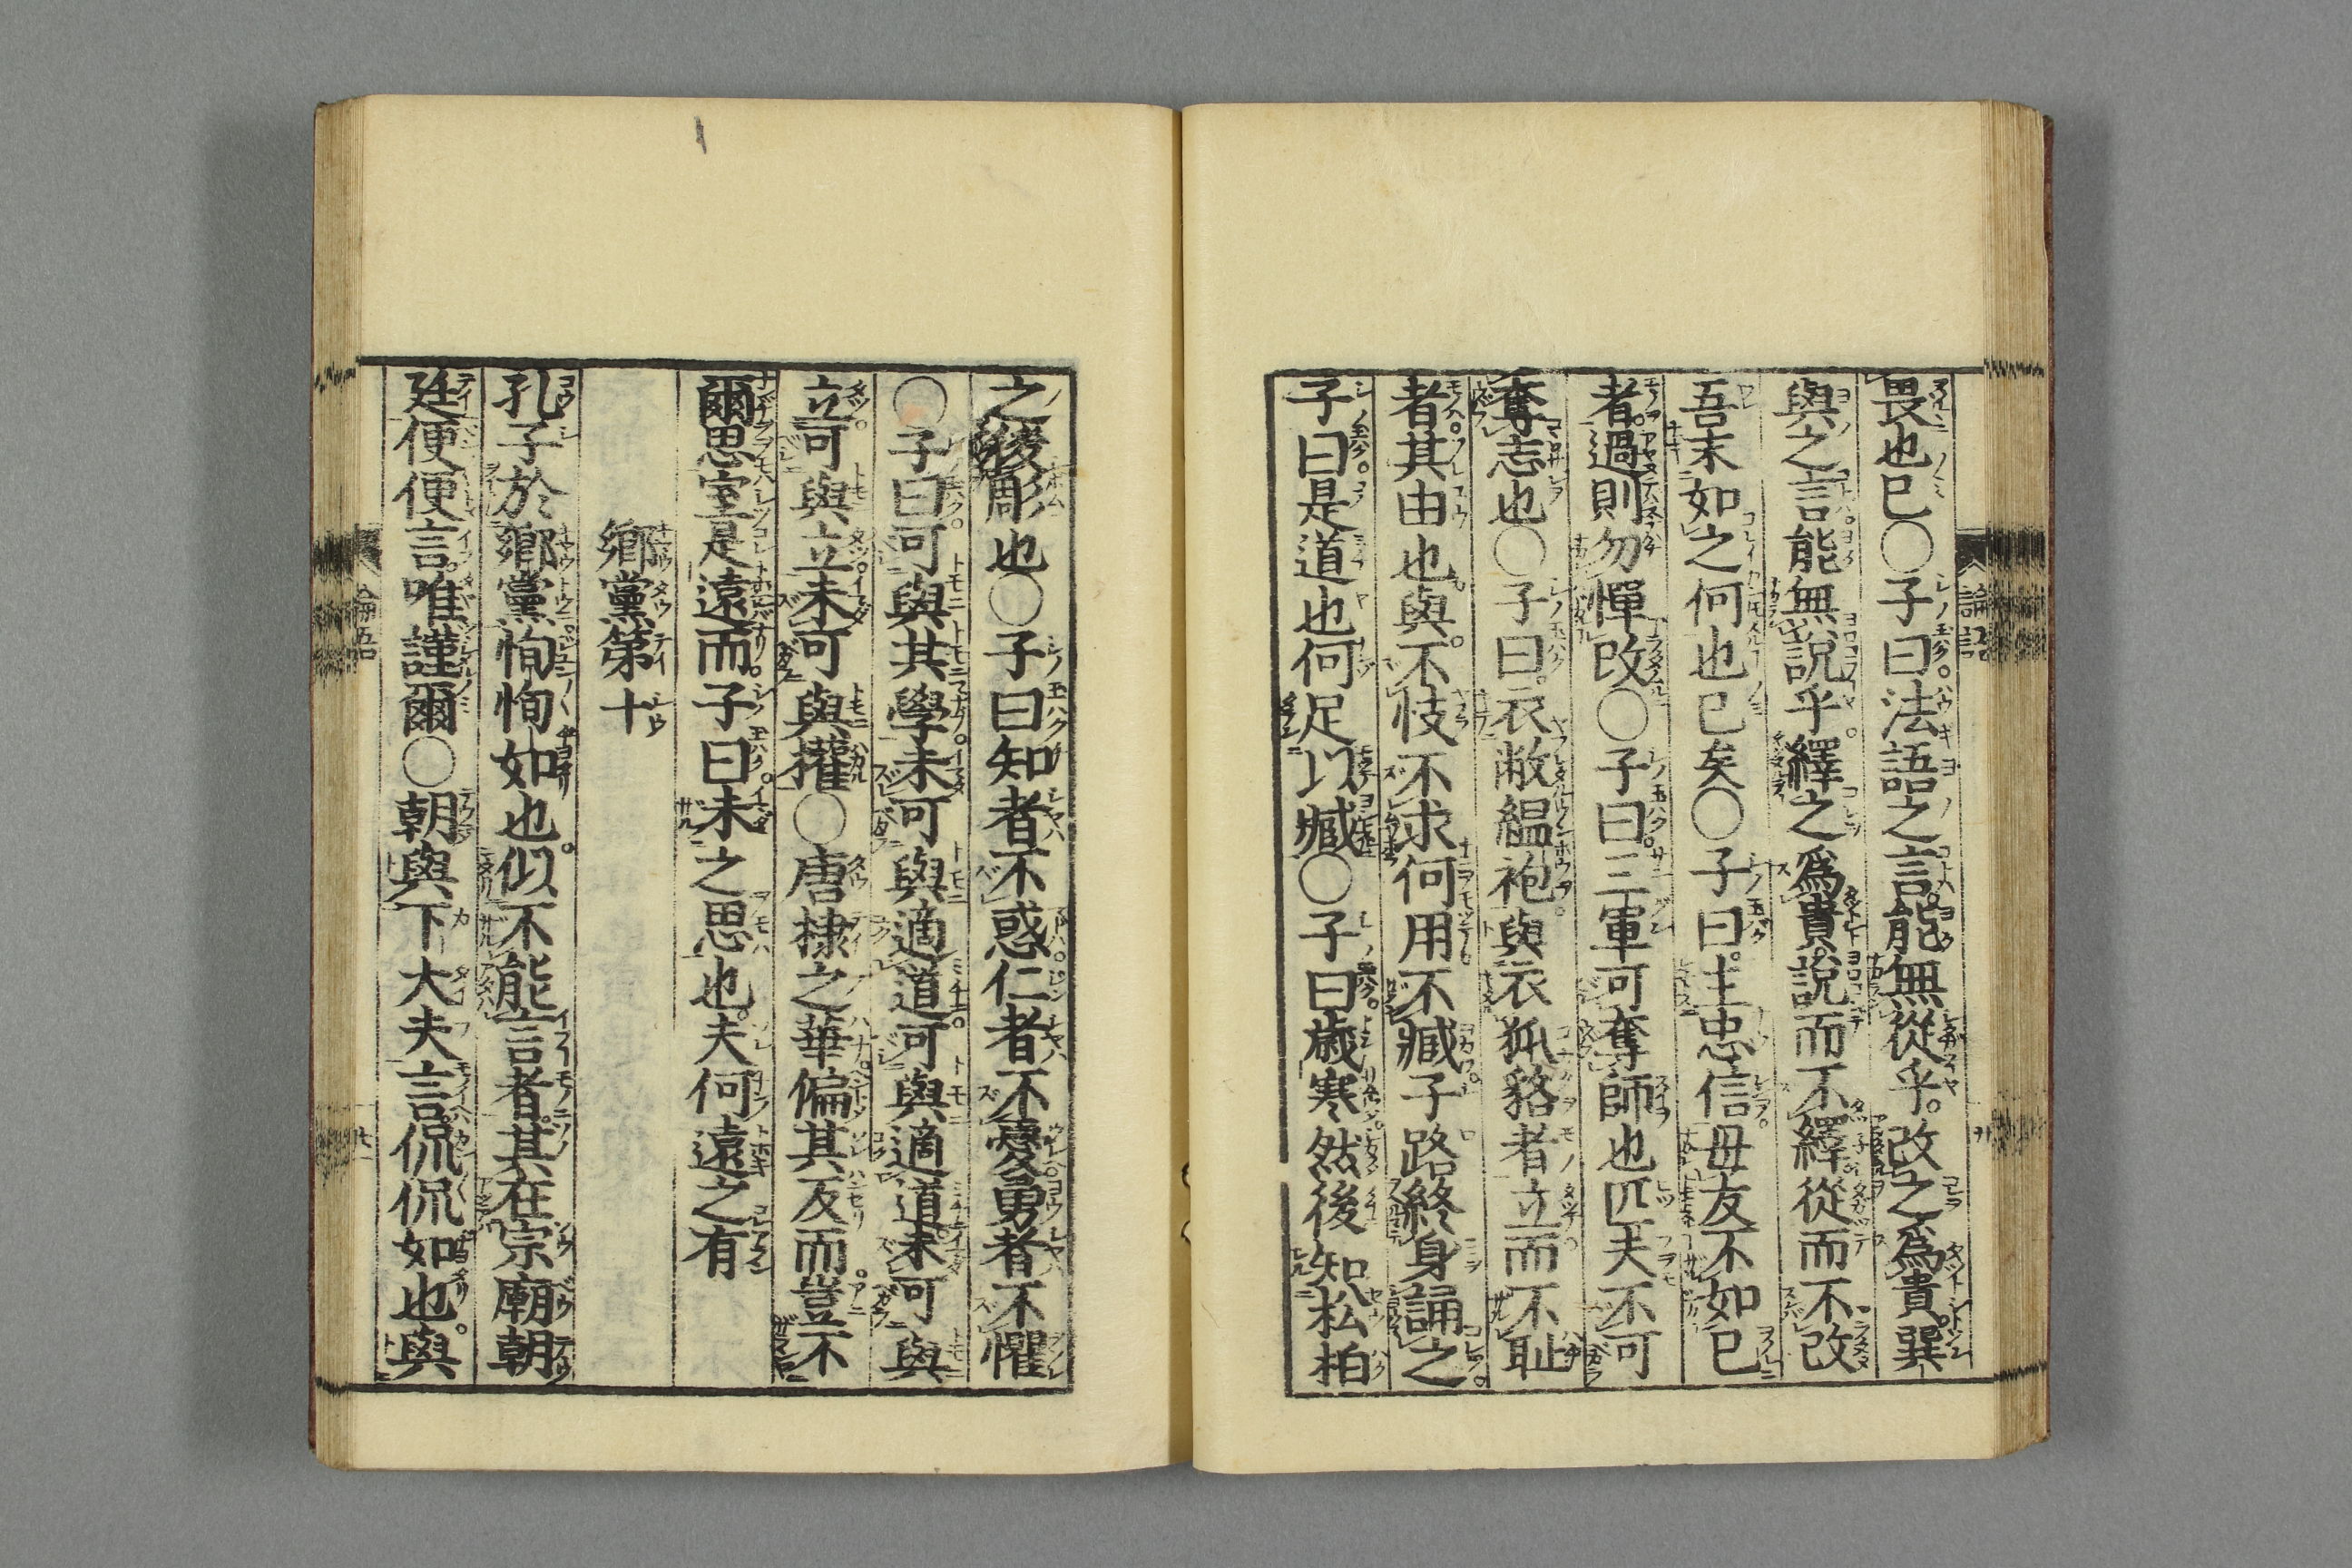 畏也已〇子曰法語之言能無從乎改之爲貴巽
與之言能無說乎繹之爲貴說而不繹從而不改
吾末如之何也已矣〇子曰主忠信毋友不如已
者過則勿憚改〇子曰三軍可奪師也匹夫不可
奪志也〇子曰衣敝縕袍與衣狐貉者立而不耻
者其由也與不忮不求何用不臧子路終身誦之
子曰是道也何足以臧〇子曰歲寒然後知松柏
之後彫也〇子曰知者不惑仁者不憂勇者不懼
〇子曰可與其學未可與適道可與適道未可與
立可與立未可與權〇唐棣之華偏其反而豈不
爾思室是遠而子曰未之思也夫何遠之有
鄉黨第十
孔子於鄉黨恂恂如也似不能言者其在宗廟朝
廷便便言唯謹爾〇朝與下大夫言侃侃如也與